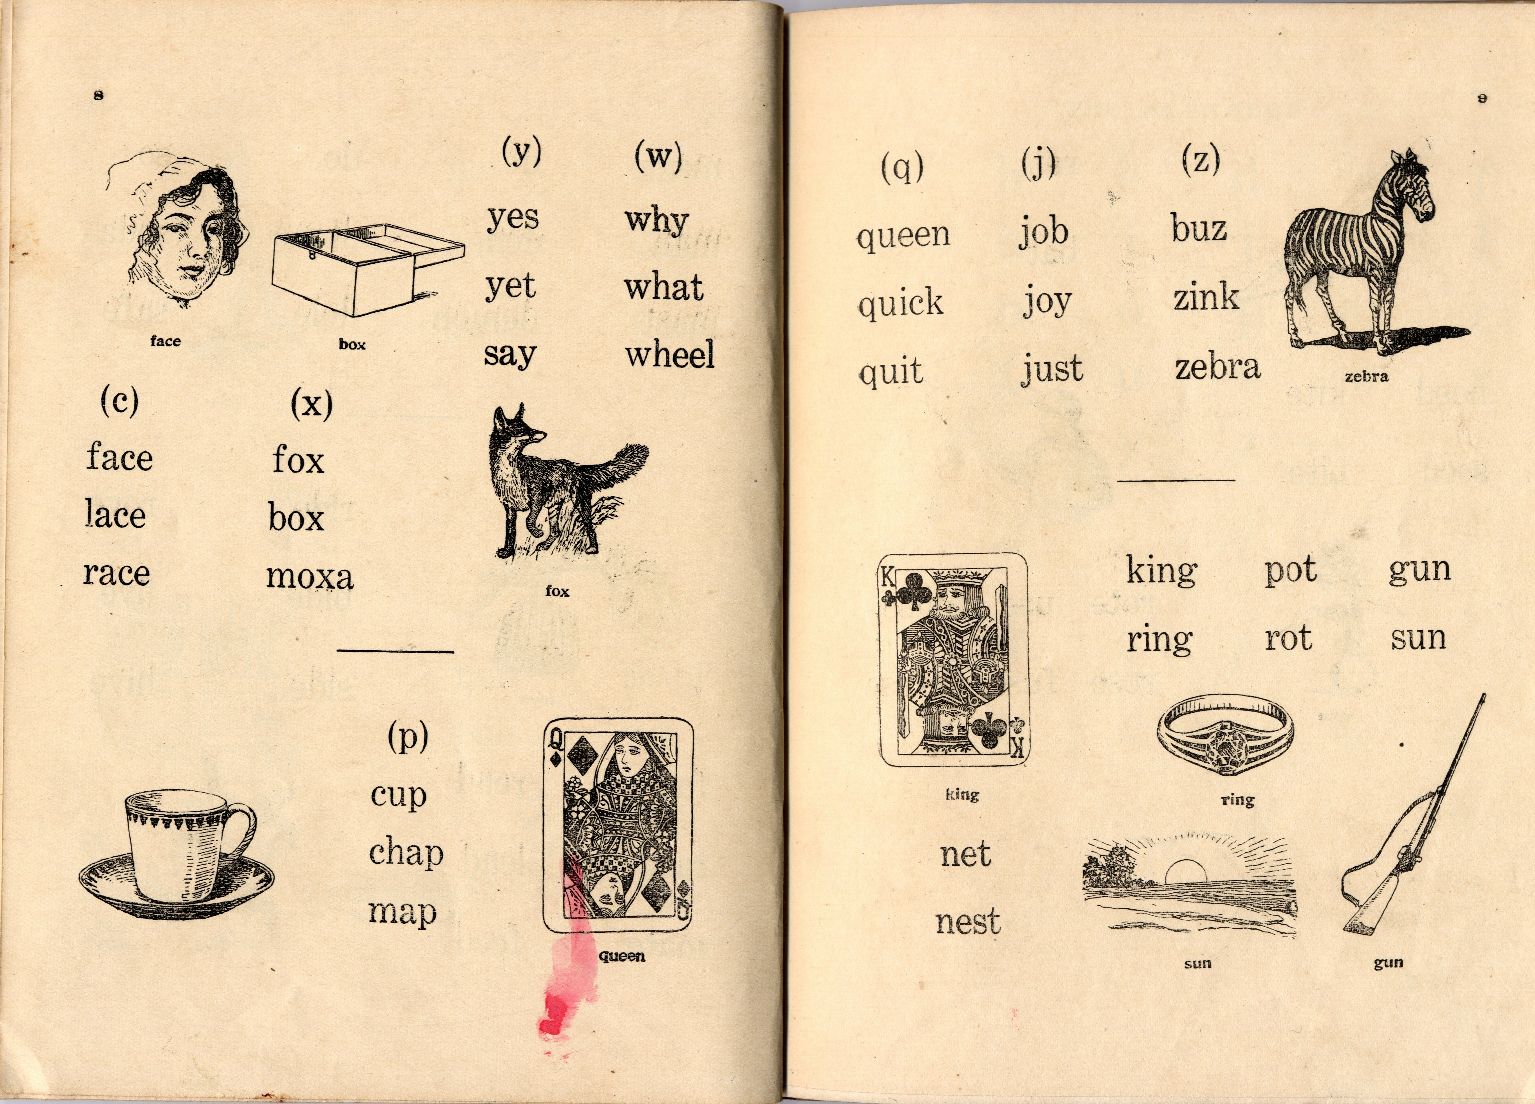 8
(y) (w)
yes why
yet what
say wheel
face box
(c) (x)
face fox
lace box
race moxa
fox
(p)
cup
chap
map
Q
Q
queen
9
(q) (j) (z)
queen job buz
quick joy zink
quit just zebra
zebra
king pot gun
ring rot sun
K
K
king
ring
net
nest
sun
gun